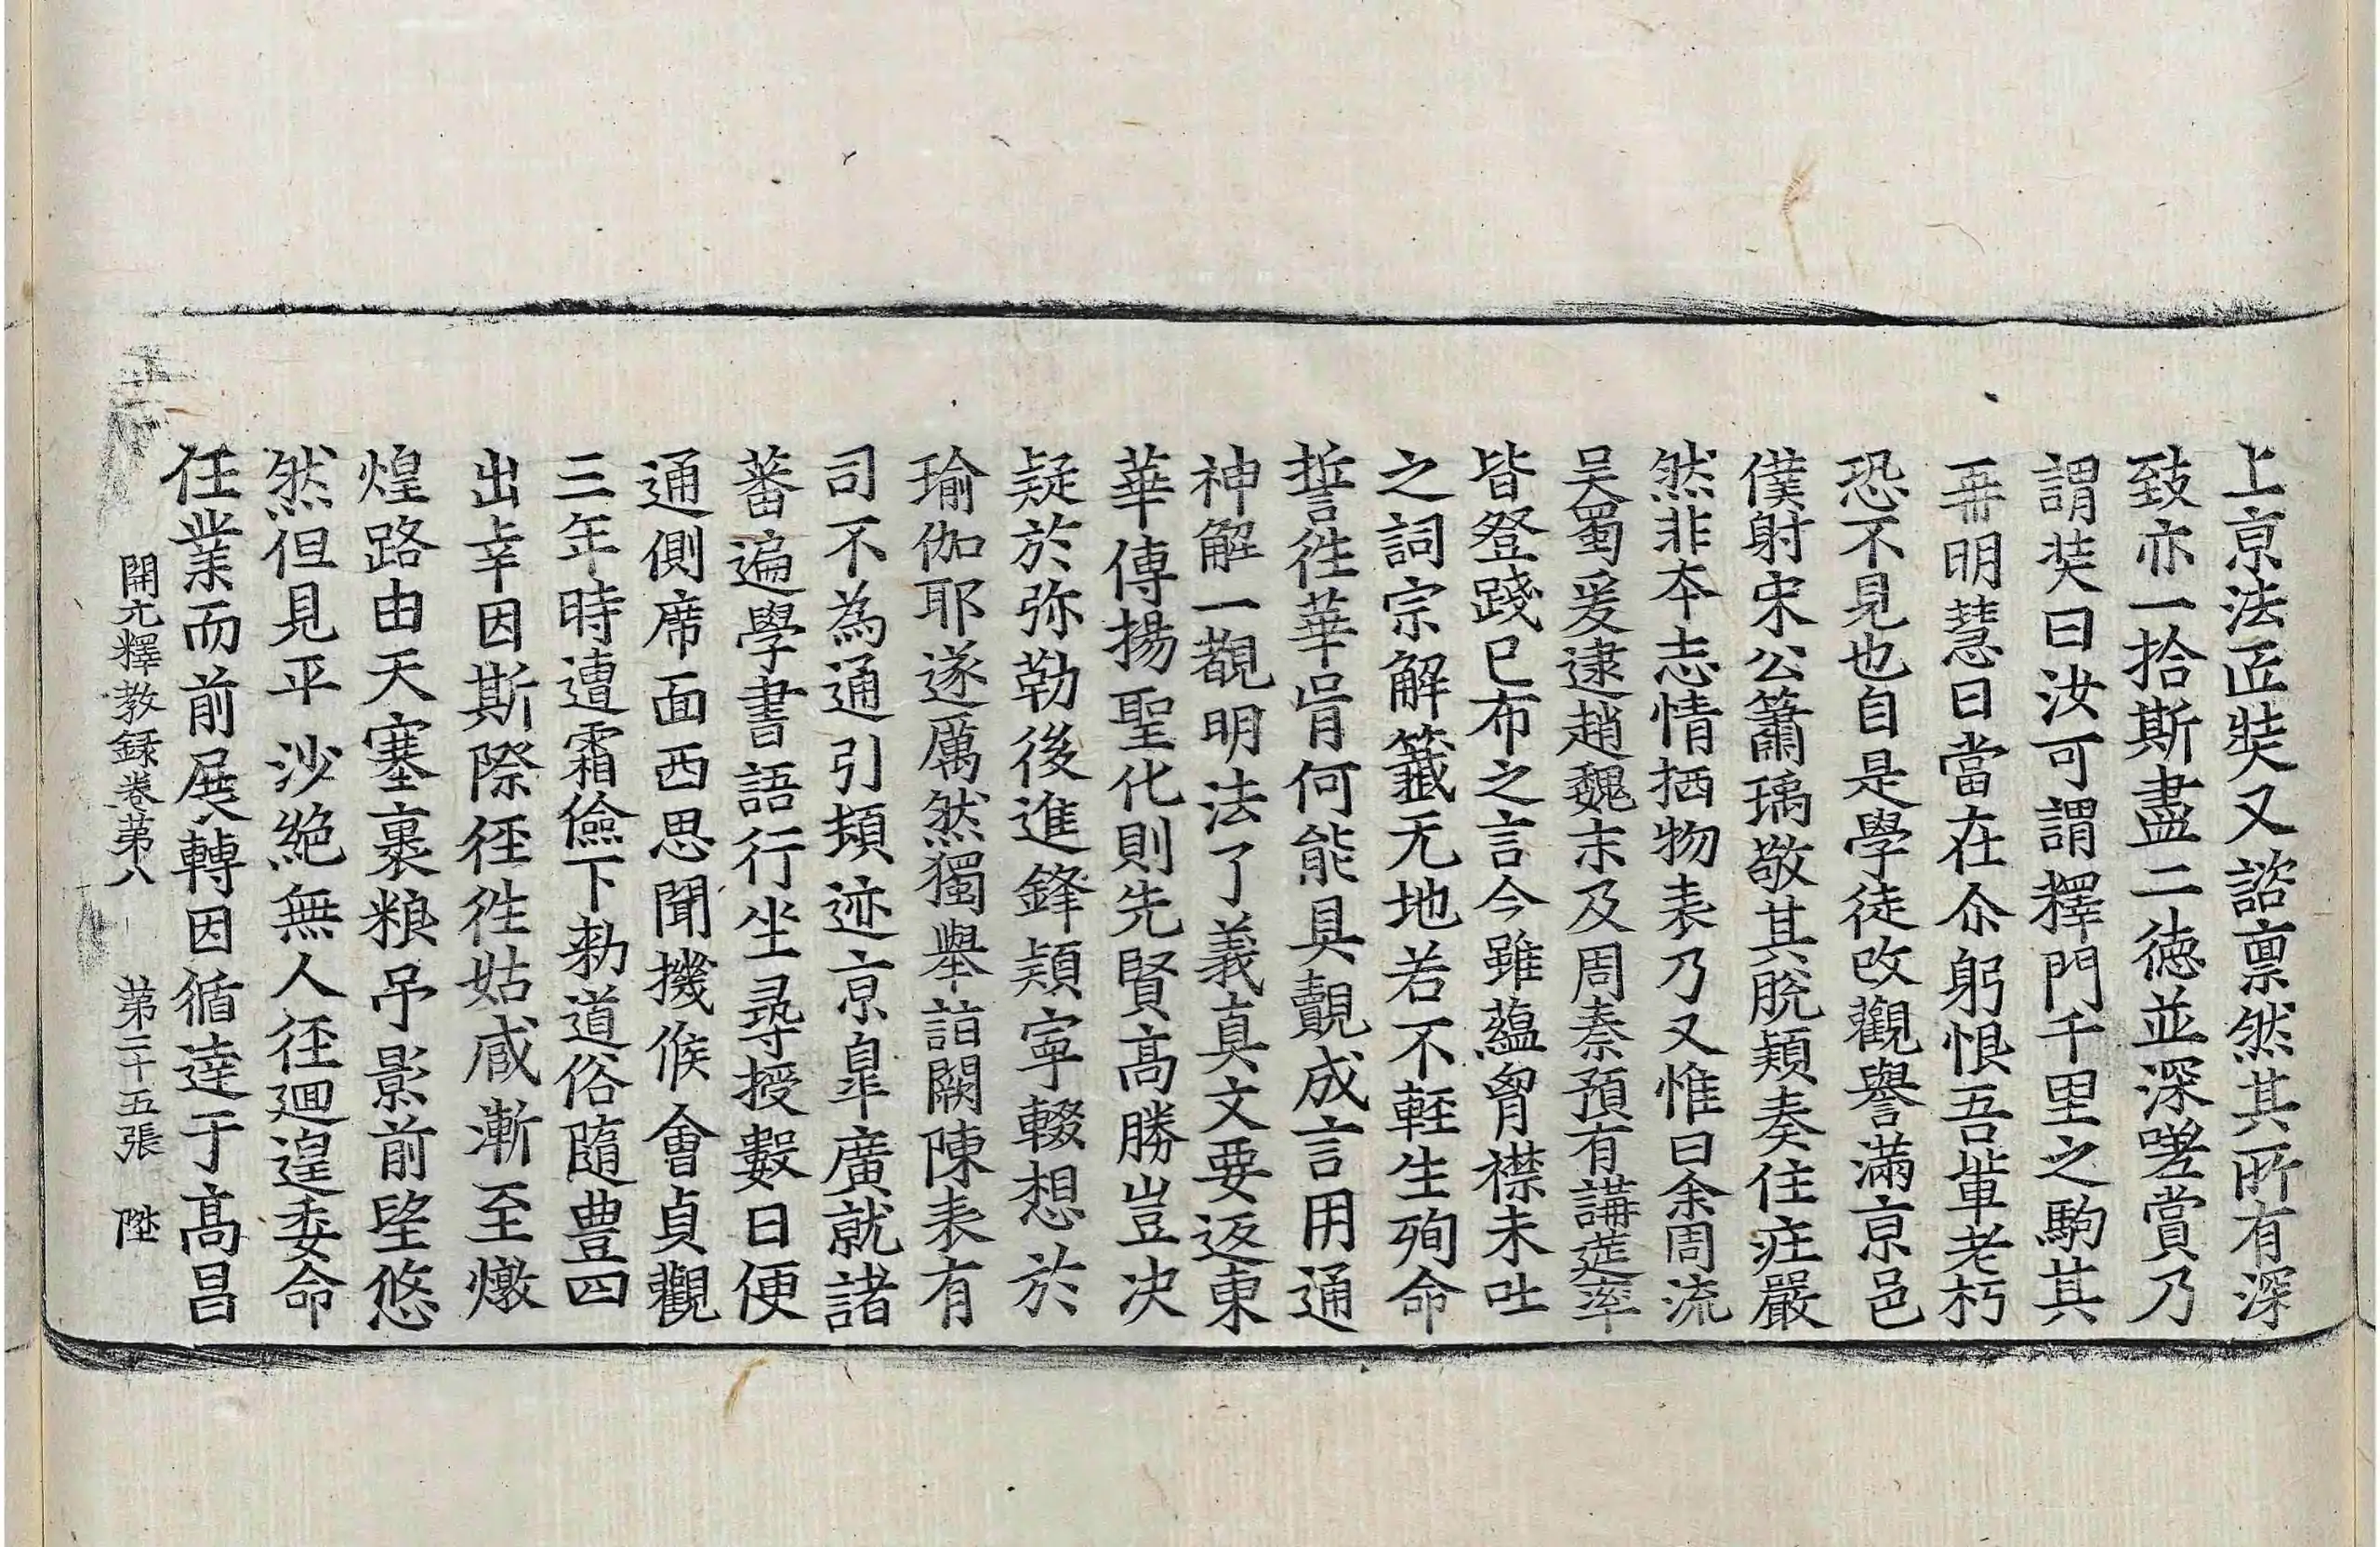 上京法匠奘又諮禀然其所有深
致亦一拾斯盡二徳並深嗟賞乃
謂奘曰汝可謂釋門千里之駒其
再明慧日當在尒躬恨吾輩老朽
恐不見也自是學徒改觀譽滿京邑
僕射宋公蕭瑀敬其脫穎奏住莊嚴
然非本志情栖物表乃又惟曰余周流
吴蜀爰逮趙魏末及周秦預有講莚率
皆登踐已布之言今雖蘊胷襟未吐
之詞宗解籤无地若不輕生殉命
誓徃華胥何能具覿成言用通
神解一觀明法了義真文要返東
華傳揚聖化則先賢高勝豈决
疑於弥勒後進鋒穎寧輟想於
瑜伽耶遂厲然獨舉詣闕陳表有
司不為通引頻迹京皐廣就諸
蕃遍學書語行坐尋授數日便
通側席面西思聞機候會貞觀
三年時遭霜儉下勑道俗隨豊四
出幸因斯際徑徃姑臧漸至燉
煌路由天塞裹粮吊影前望悠
然但見平沙絶無人徑廻遑委命
任業而前展轉因循達于高昌
開元釋教録卷第八 第二十五張 陞